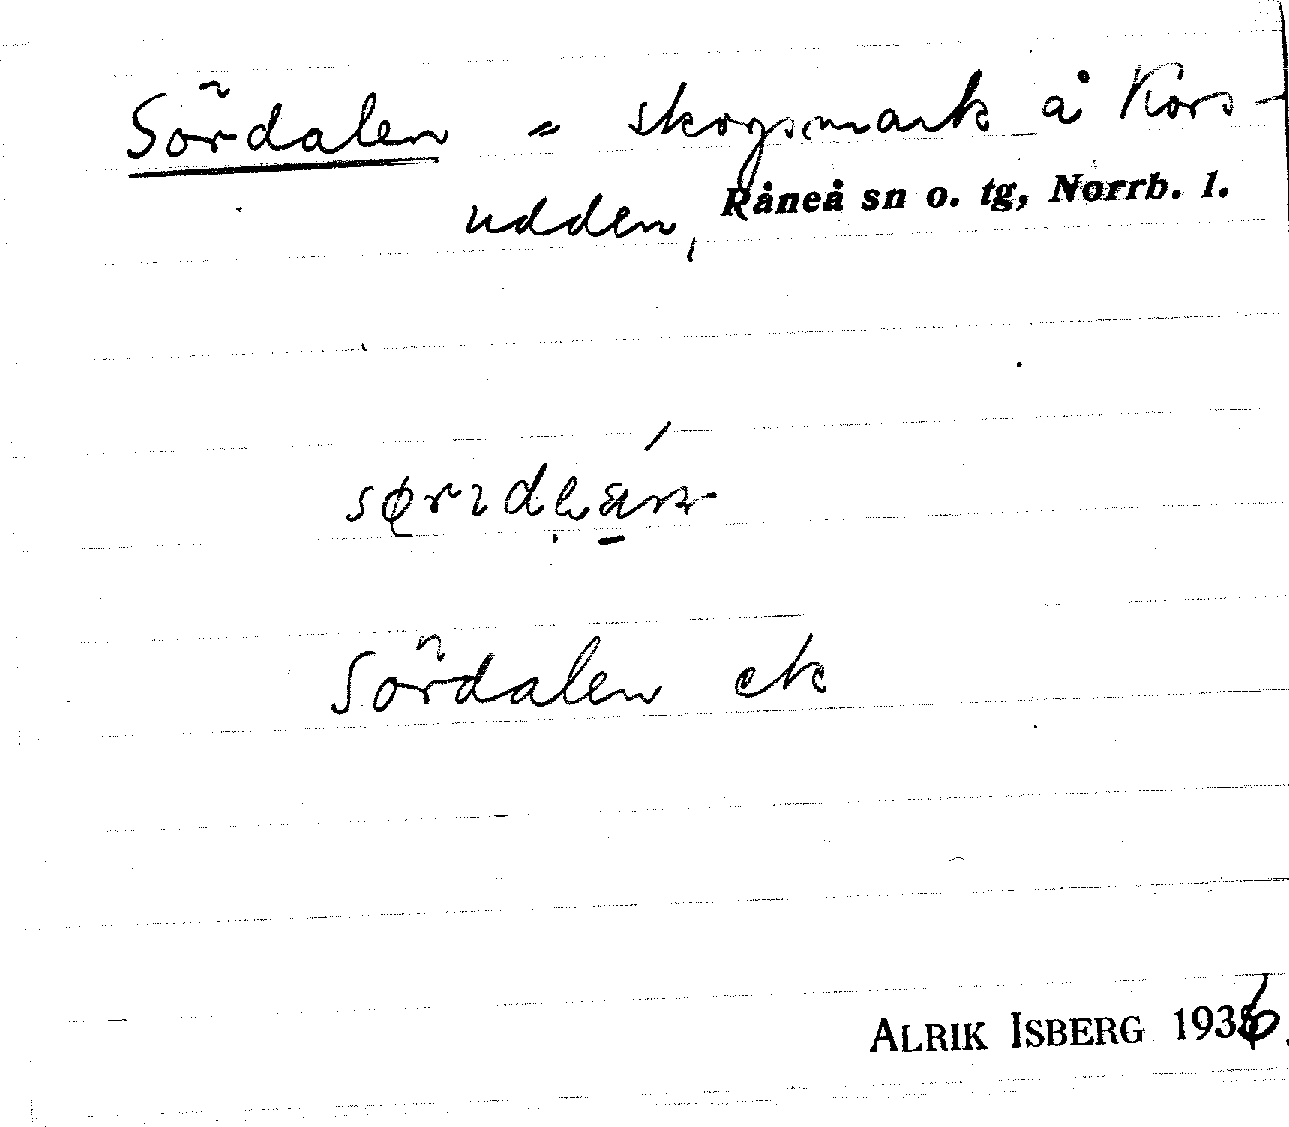 Sördalen = skogsmark å Kors-
udden, Råneå sn o. tg, Norrb. l.
Sördalen ek
ALRIK ISBERG 1936.